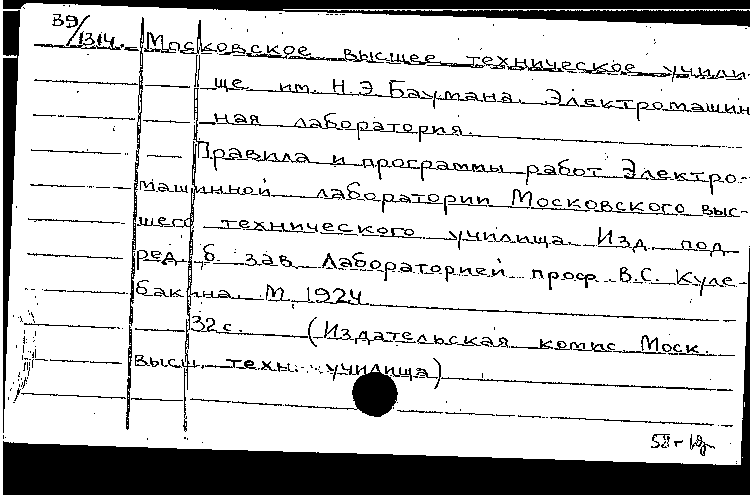 В9/1314. Московское высшее техническое учили-
ще им. Н.Э.Баумана. Электромашин
ная лаборатория.
— Правила и программы работ Электро-
машинной лаборатории Московского выс-
шего технического училища. Изд. под
ред. б. зав. Лабораторией проф. В.С. Куле-
бакина. М, 1924
32 с. (Издательская комис Моск.
высш. техн. училища)